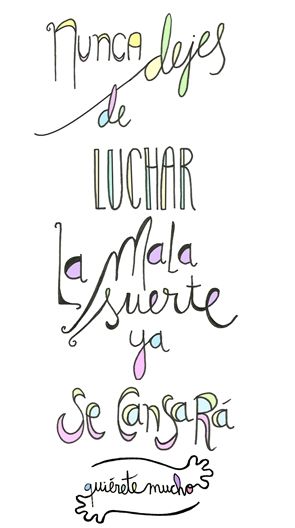 Nunca dejes
de
LUCHAR
La Mala
suerte
ya
Se Cansará
quiérete mucho